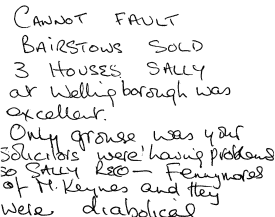 CANNOT FAULT
BAIRSTOWS SOLD
3 HOUSES. SALLY
at Wellingborough was
excellent.
Only grouse was your
solicitors were having problems
so SALLY REC — Fennymores
of M. Keynes and they
were diabolical